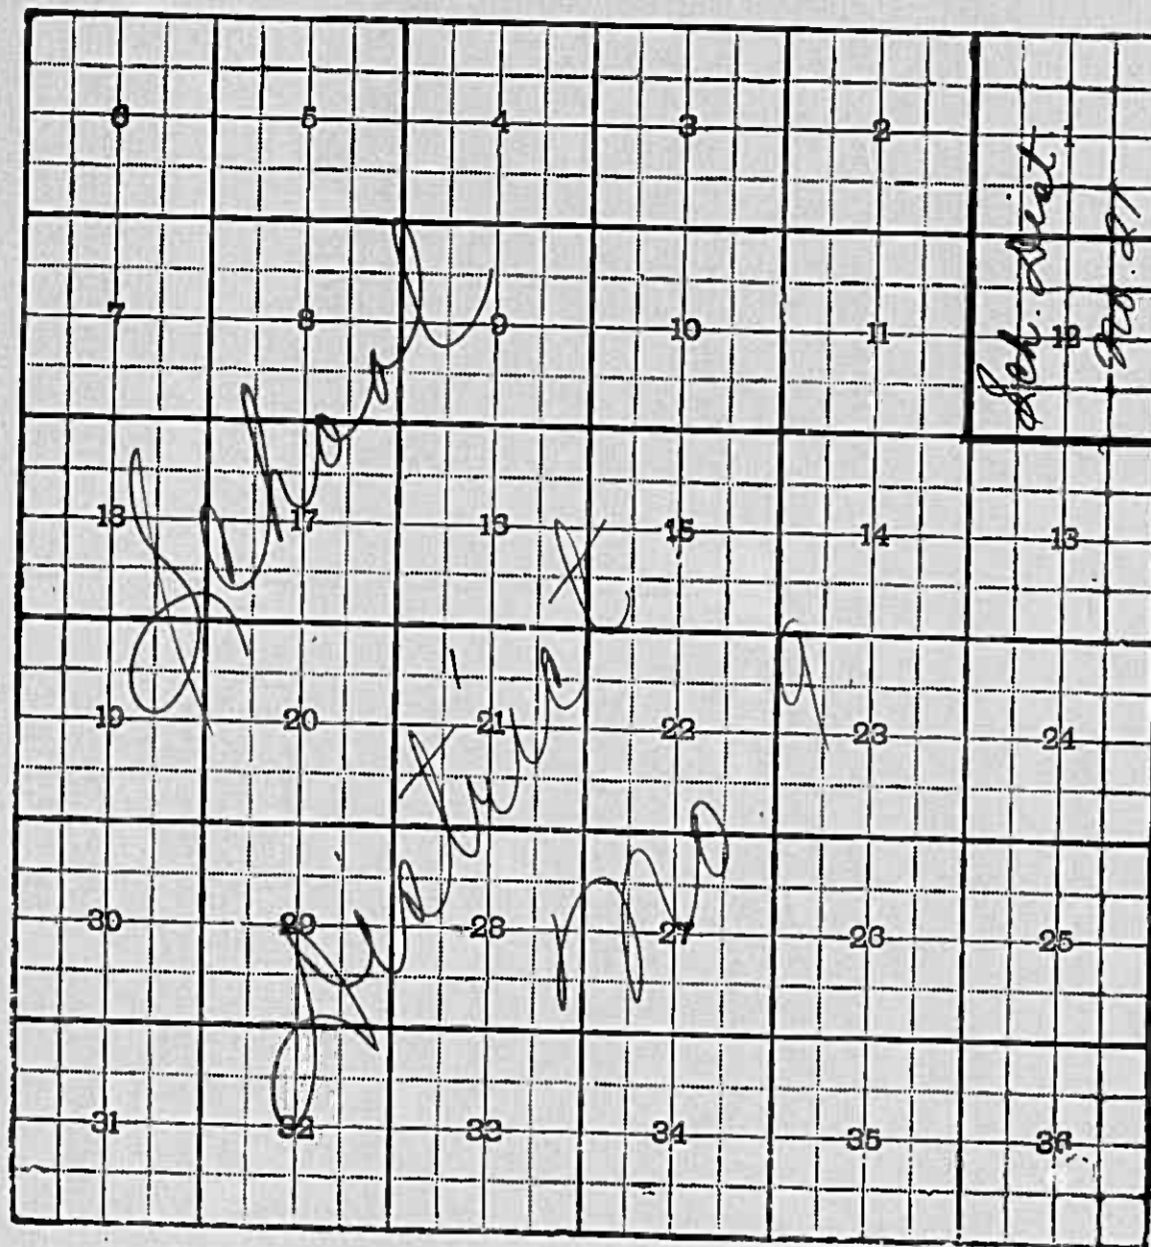 6 5 4 3 2 1
7 8 9 10 11 12
18 17 16 15 14 13
19 20 21 22 23 24
30 29 28 27 26 25
31 32 33 34 35 36
School
District
No 9
Sch. Dist
No.